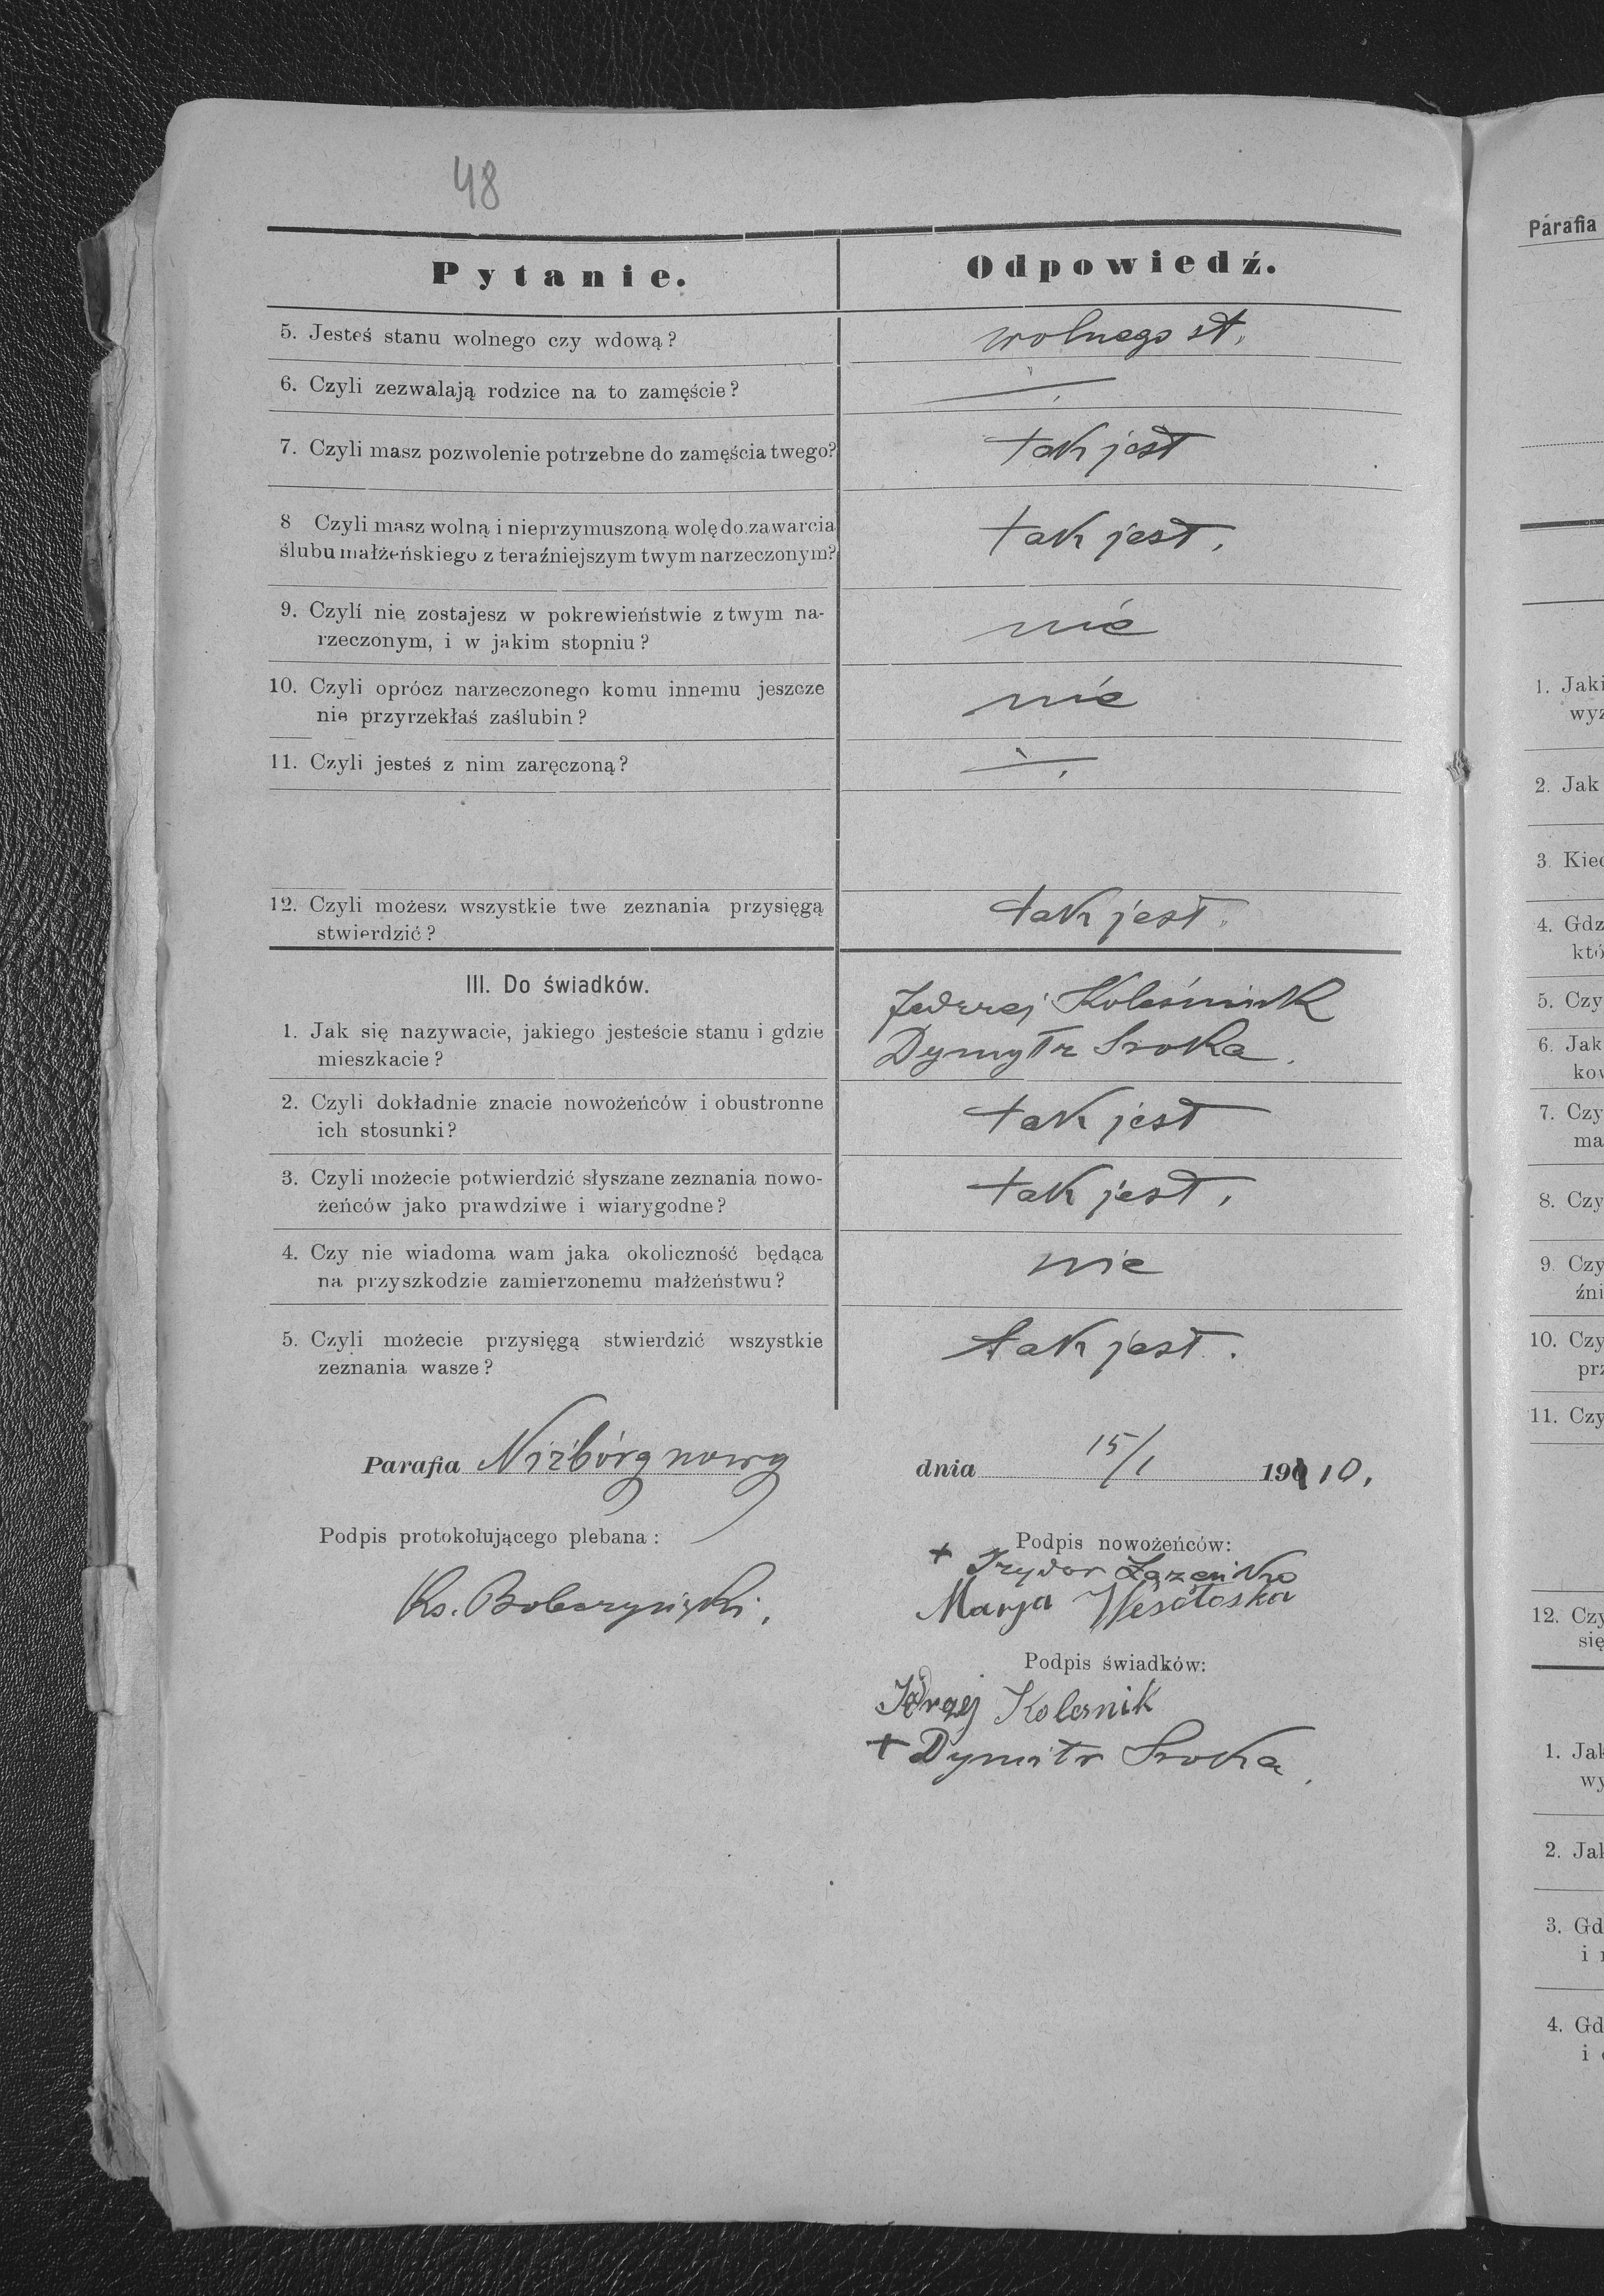 48
Pytanie.
Odpowiedź.
5. Jesteś stanu wolnego czy wdową?
wolnego st.
6. Czyli zezwalają rodzice na to zamęście?
7. Czyli masz pozwolenie potrzebne do zamęścia twego?
tak jest
8 Czyli masz wolną i nieprzymuszoną wolę do zawarcia
ślubu małżeńskiego z teraźniejszym twym narzeczonym?
tak jest.
9. Czyli nie zostajesz w pokrewieństwie z twym na-
rzeczonym, i w jakim stopniu?
nie
10. Czyli oprócz narzeczonego komu innemu jeszcze
nie przyrzekłaś zaślubin?
nie
11. Czyli jesteś z nim zaręczoną?
12. Czyli możesz wszystkie twe zeznania przysięgą
stwierdzić?
tak jest.
III. Do świadków.
1. Jak się nazywacie, jakiego jesteście stanu i gdzie
mieszkacie?
Jędrzej Koleśnik
Dymytr Sroka.
2. Czyli dokładnie znacie nowożeńców i obustronne
ich stosunki?
tak jest
3. Czyli możecie potwierdzić słyszane zeznania nowo-
żeńców jako prawdziwe i wiarygodne?
tak jest.
4. Czy nie wiadoma wam jaka okoliczność będąca
na przyszkodzie zamierzonemu małżeństwu?
nie
5. Czyli możecie przysięgą stwierdzić wszystkie
zeznania wasze?
tak jest.
Parafia Niżbórg nowy
dnia 15/1 1910.
Podpis protokołującego plebana:
Ks.
Podpis nowożeńców:
+ Izydor
Marya Wesołoska
Podpis świadków:
Kolesnik
+ Dymitr Sroka.
Parafia
1. Jaki
wyz
2. Jak
3. Kied
4. Gdz
któ
5. Czy
6. Jak
kow
7. Czy
ma
8. Czy
9. Czy
źni
10. Czy
prz
11. Czy
12. Czy
się
1. Jak
wy
2. Jak
3. Gd
i
4. Gd
i